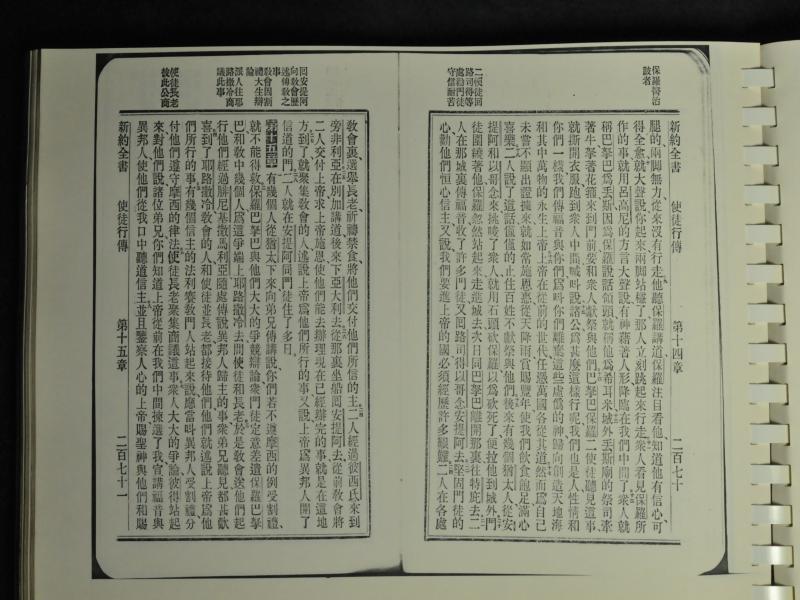 保羅醫治
跛者
二使徒回
路司得等
處爲門徒
守信耐苦
新約全書 使徒行傳 第十四章 二百七十
腿的、兩脚無力、從來沒有行走、他聽保羅講道、保羅注目看他、知道他有信心、可
得全愈、就大聲說、你起來、兩脚站穩了、那人立刻跳起來行走、衆人看見保羅所
作的事、就用呂高尼的方言、大聲說、有神藉著人形降臨在我們中間了、衆人就
稱巴拏巴爲丟斯、因爲保羅說話領頭、就稱他爲希耳米、城外丟斯廟的祭司、牽
著牛、拏著花圈、來到門前、要和衆人獻祭與他們、巴拏巴保羅二使徒聽見這事、
就撕開衣服、跑到衆人中間喊叫說、諸公、爲甚麼這樣行呢、我們也是人、性情和
你們一樣、我們傳福音與你們、爲叫你們離棄這些虛僞的神、歸向創造天地海
和其中萬物的永生上帝、上帝在從前的世代、任憑萬國各從其道、然而爲自己
未嘗不顯出證據來、就如常施恩惠、從天降雨、賞賜豐年、使我們飲食飽足、滿心
喜樂、二人說了這話、僅僅的止住百姓不獻祭與他們、後來有幾個猶太人、從安
提阿和以哥念來、挑唆了衆人、就用石頭砍保羅、以爲砍死了、便拉他到城外、門
徒圍繞著他、保羅忽然站起來、走進城去、次日同巴拏巴離開那裏、往特庇去、二
人在那城裏傳福音、收了許多門徒、又回路司得以哥念安提阿去、堅固門徒的
心、勸他們恒心信主、又說、我們要進上帝的國、必須經歷許多艱難、二人在各處
回安提阿
向敎會歷
述傳敎之
事
敎會因割
禮大生辯
論
派人往耶
路撒冷商
議此事
使徒長老
彼此公商
敎會裏、選舉長老、祈禱禁食、將他們交付他們所信的主、二人經過彼西氏、來到
旁非利亞、在別加講道、後來下亞大利去、從那裏坐船、回安提阿去、從前敎會將
二人交付上帝、求上帝施恩使他們能去辦理現在已經辦完的事、就是在這地
方、到了就聚集敎會的人、述說上帝爲他們所行的事、又說上帝爲異邦人開了
信道的門、二人就在安提阿同門徒住了多日、
第十五章 有幾個人從猶太下來、向弟兄傳講說、你們若不遵摩西的例受割禮、
就不能得救、保羅巴拏巴與他們大大的爭競辯論、衆門徒定意差遣保羅巴拏
巴和敎中幾個人、爲這爭端、上耶路撒冷去問使徒和長老、於是敎會送他們起
行、他們經過腓尼基撒馬利亞、隨處傳說異邦人歸主的事、衆弟兄聽見都甚歡
喜、到了耶路撒冷、敎會的人和使徒並長老都接待他們、他們就述說上帝爲他
們所行的事、有幾個信主的法利賽敎門人、站起來說、應當叫異邦人受割禮、分
付他們遵守摩西的律法、使徒長老聚集商議這事、衆人大大的爭論、彼得站起
來、對他們說、諸位弟兄、你們知道上帝從前在我們中間揀選了我、宣講福音與
異邦人、使他們從我口中聽道信主、並且鑒察人心的上帝、賜聖神與他們、和賜
新約全書 使徒行傳 第十五章 二百七十一